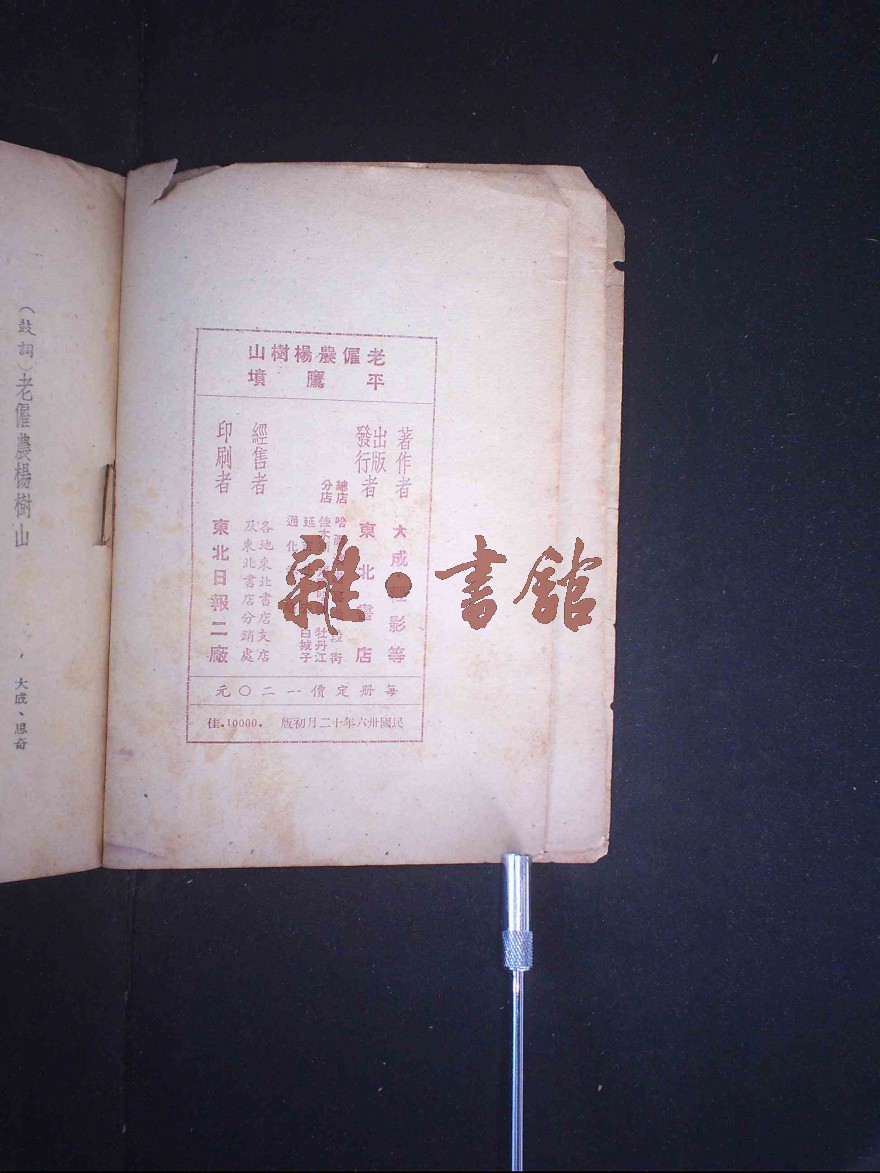 老僱農楊樹山
平鷹墳
著作者 大成 影等
出版發行者 東北書店
總店 哈
分店 佳木 牡丹江
延 白城子
通化
經售者 各地東北書店支店
及東北書店分銷處
印刷者 東北日報二廠
每册定價一二〇元
民國卅六年十二月初版 佳.10000.
(鼓詞)老僱農楊樹山
大成、思奇
雜·書館